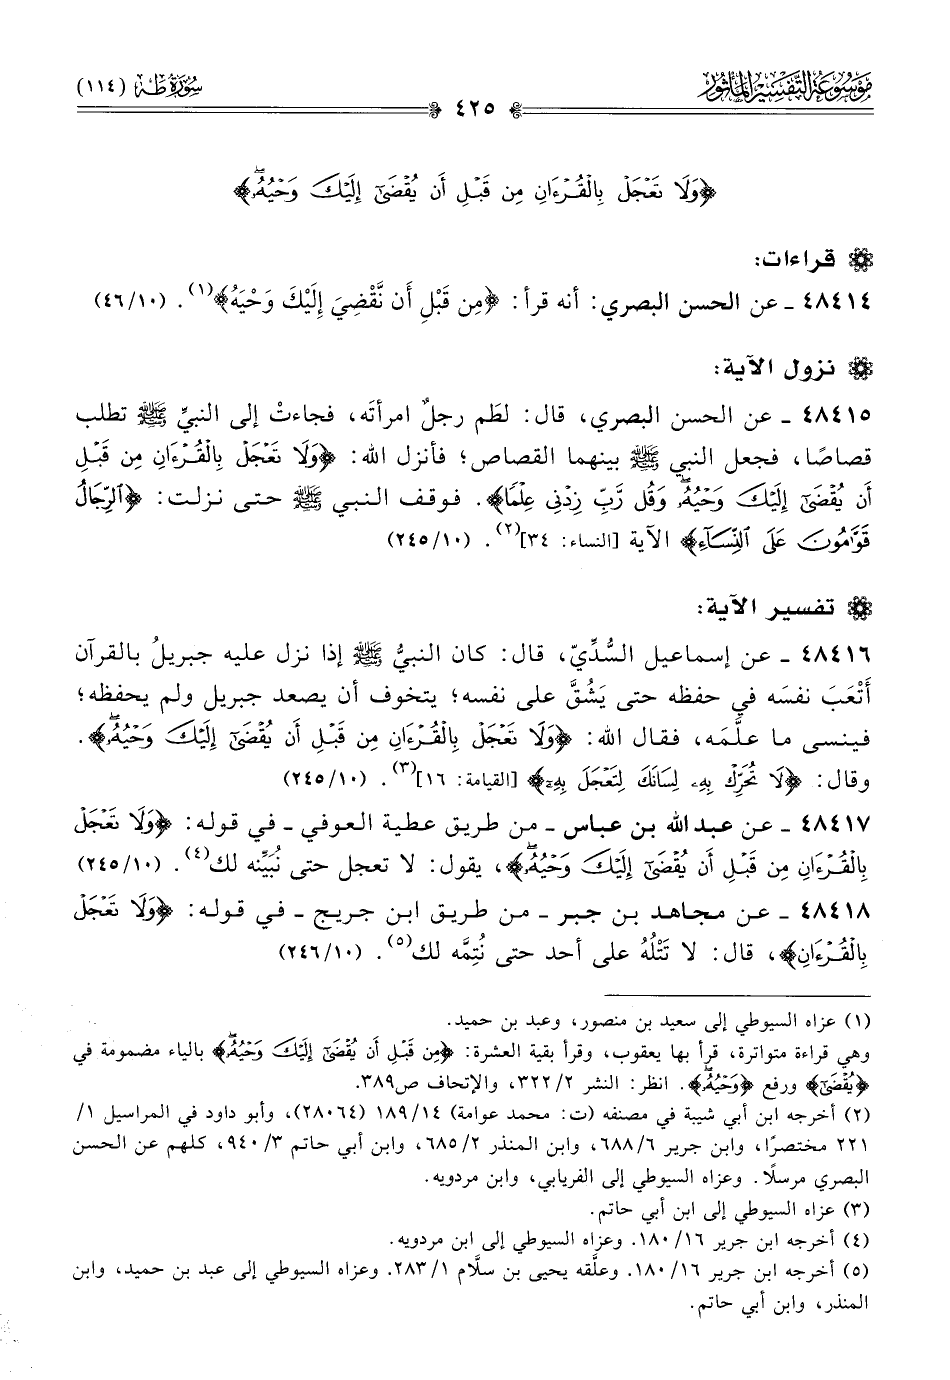 مَوْسُوعَة التَّفْسِيرِ المَأْثُور
سُورَة طه (١١٤)
٤٢٥
﴿وَلَا تَعْجَلْ بِالْقُرْءَانِ مِن قَبْلِ أَن يُقْضَىٰٓ إِلَيْكَ وَحْيُهُۥۖ﴾
قراءات:
٤٨٤١٤ ـ عن الحسن البصري: أنه قرأ: ﴿مِن قَبْلِ أَن نَّقْضِيَ إِلَيْكَ وَحْيَهُ﴾(١). (٤٦/١٠)
نزول الآية:
٤٨٤١٥ ـ عن الحسن البصري، قال: لطَم رجلٌ امرأتَه، فجاءتْ إلى النبيِّ ﷺ تطلب
قصاصًا، فجعل النبي ﷺ بينهما القصاص؛ فأنزل الله: ﴿وَلَا تَعْجَلْ بِالْقُرْءَانِ مِن قَبْلِ
أَن يُقْضَىٰٓ إِلَيْكَ وَحْيُهُۥۖ وَقُل رَّبِّ زِدْنِى عِلْمًا﴾. فوقف النبي ﷺ حتى نزلت: ﴿ٱلرِّجَالُ
قَوَّٰمُونَ عَلَى ٱلنِّسَآءِ﴾ الآية [النساء: ٣٤](٢). (٢٤٥/١٠)
تفسير الآية:
٤٨٤١٦ ـ عن إسماعيل السُّدِّيّ، قال: كان النبيُّ ﷺ إذا نزل عليه جبريلُ بالقرآن
أَتْعَبَ نفسَه في حفظه حتى يَشُقَّ على نفسه؛ يتخوف أن يصعد جبريل ولم يحفظه؛
فينسى ما علَّمَه، فقال الله: ﴿وَلَا تَعْجَلْ بِالْقُرْءَانِ مِن قَبْلِ أَن يُقْضَىٰٓ إِلَيْكَ وَحْيُهُۥۖ﴾.
وقال: ﴿لَا تُحَرِّكْ بِهِۦ لِسَانَكَ لِتَعْجَلَ بِهِۦٓ﴾ [القيامة: ١٦](٣). (٢٤٥/١٠)
٤٨٤١٧ ـ عن عبد الله بن عباس ـ من طريق عطية العوفي ـ في قوله: ﴿وَلَا تَعْجَلْ
بِالْقُرْءَانِ مِن قَبْلِ أَن يُقْضَىٰٓ إِلَيْكَ وَحْيُهُۥۖ﴾، يقول: لا تعجل حتى نُبَيِّنه لك(٤). (٢٤٥/١٠)
٤٨٤١٨ ـ عن مجاهد بن جبر ـ من طريق ابن جريج ـ في قوله: ﴿وَلَا تَعْجَلْ
بِالْقُرْءَانِ﴾، قال: لا تَتْلُهُ على أحد حتى نُتِمَّه لك(٥). (٢٤٦/١٠)
(١) عزاه السيوطي إلى سعيد بن منصور، وعبد بن حميد.
وهي قراءة متواترة، قرأ بها يعقوب، وقرأ بقية العشرة: ﴿مِن قَبْلِ أَن يُقْضَىٰٓ إِلَيْكَ وَحْيُهُۥۖ﴾ بالياء مضمومة في
﴿يُقْضَىٰٓ﴾ ورفع ﴿وَحْيُهُۥۖ﴾. انظر: النشر ٣٢٢/٢، والإتحاف ص٣٨٩.
(٢) أخرجه ابن أبي شيبة في مصنفه (ت: محمد عوامة) ١٨٩/١٤ (٢٨٠٦٤)، وأبو داود في المراسيل ١/
٢٢١ مختصرًا، وابن جرير ٦٨٨/٦، وابن المنذر ٦٨٥/٢، وابن أبي حاتم ٩٤٠/٣، كلهم عن الحسن
البصري مرسلًا. وعزاه السيوطي إلى الفريابي، وابن مردويه.
(٣) عزاه السيوطي إلى ابن أبي حاتم.
(٤) أخرجه ابن جرير ١٨٠/١٦. وعزاه السيوطي إلى ابن مردويه.
(٥) أخرجه ابن جرير ١٨٠/١٦. وعلَّقه يحيى بن سلَّام ٢٨٣/١. وعزاه السيوطي إلى عبد بن حميد، وابن
المنذر، وابن أبي حاتم.